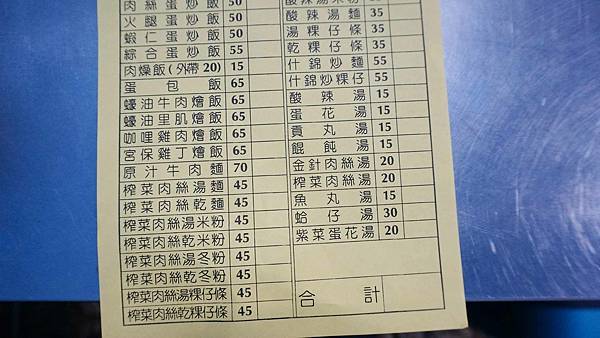 肉絲蛋炒飯 50
火腿蛋炒飯 50
蝦仁蛋炒飯 50
綜合蛋炒飯 55
肉燥飯(外帶20) 15
蛋包飯 65
蠔油牛肉燴飯 65
蠔油里肌燴飯 65
咖哩雞肉燴飯 65
宮保雞丁燴飯 65
原汁牛肉麵 70
榨菜肉絲湯麵 45
榨菜肉絲乾麵 45
榨菜肉絲湯米粉 45
榨菜肉絲乾米粉 45
榨菜肉絲湯冬粉 45
榨菜肉絲乾冬粉 45
榨菜肉絲湯粿仔條 45
榨菜肉絲乾粿仔條 45
酸辣湯米粉 35
酸辣湯麵 35
湯粿仔條 35
乾粿仔條 35
什錦炒麵 55
什錦炒粿仔 55
酸辣湯 15
蛋花湯 15
貢丸湯 15
餛飩湯 15
金針肉絲湯 20
榨菜肉絲湯 20
魚丸湯 15
蛤仔湯 30
紫菜蛋花湯 20
合計